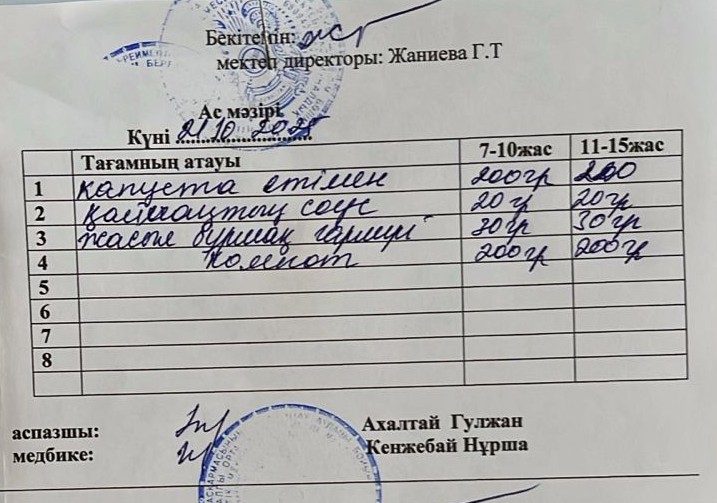 Бекітемін:
мектеп директоры: Жаниева Г.Т
Ас мәзірі
Күні 21.10. 2025
Тағамның атауы 7-10жас 11-15жас
1 капуста етімен 200гр 200
2 қаймақтың соус 20гр 20гр
3 жасыл бұршақ гарнирі 30гр 30гр
4 компот 200гр 200гр
5
6
7
8
аспазшы: Ахалтай Гулжан
медбике: Кенжебай Нұрша